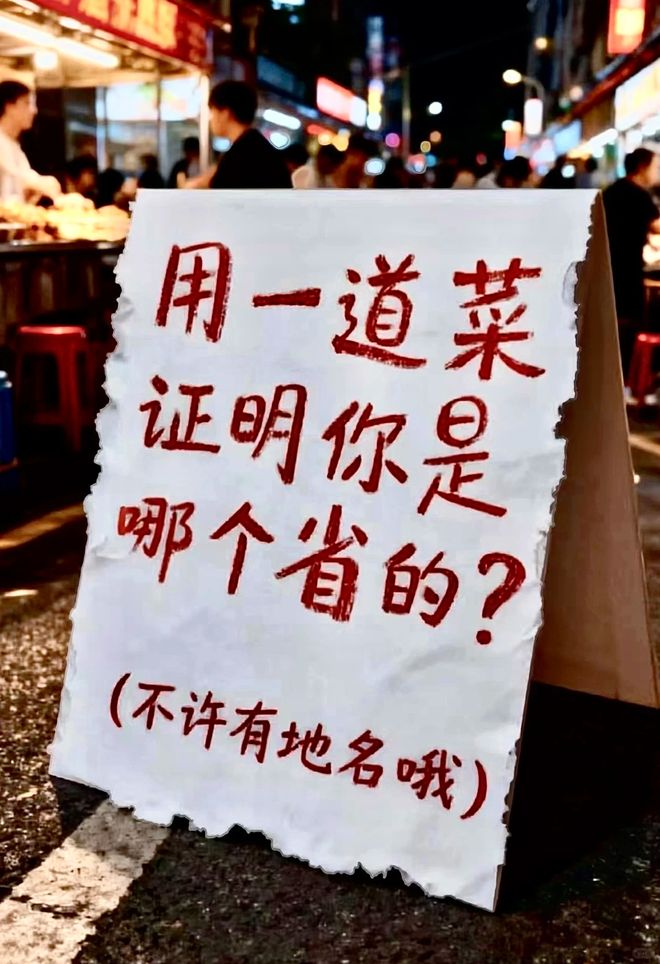 用一道菜
证明你是
哪个省的?
(不许有地名哦)